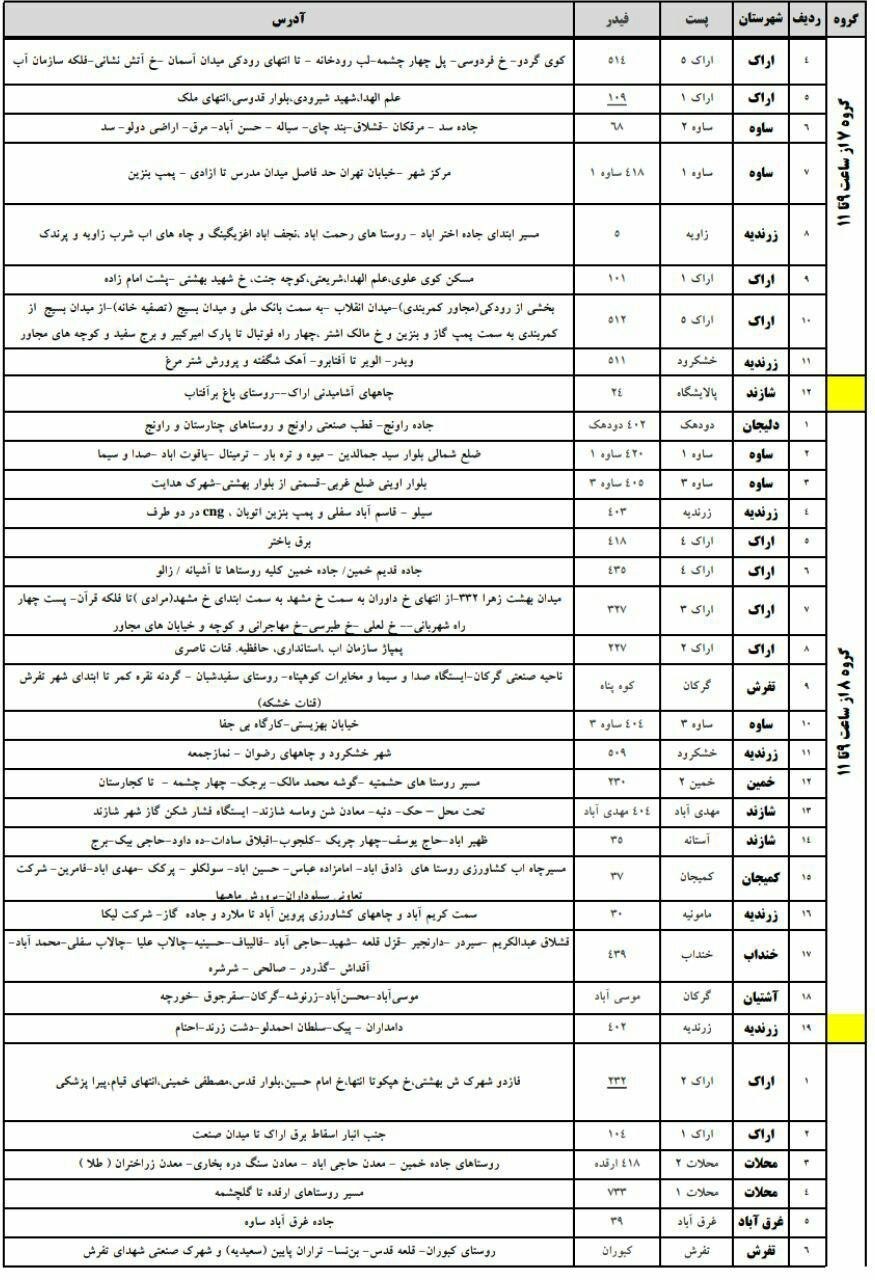 گروه ردیف شهرستان پست فیدر آدرس
گروه ۷ از ساعت ۹ تا ۱۱
٤ اراک اراک ٥ ٥١٤ کوی گردو- خ فردوسی- پل چهار چشمه-لب رودخانه - تا انتهای رودکی میدان آسمان -خ آتش نشانی-فلکه سازمان آب
٥ اراک اراک ١ ١٠٩ علم الهدا،شهید شیرودی،بلوار قدوسی،انتهای ملک
٦ ساوه ساوه ٢ ٦٨ جاده سد - مرقکان -قشلاق-بند چای- سیاله - حسن آباد- مرق- اراضی دولو- سد
٧ ساوه ساوه ١ ٤١٨ ساوه ١ مرکز شهر -خیابان تهران حد فاصل میدان مدرس تا ازادی - پمپ بنزین
٨ زرندیه زاویه ٥ مسیر ابتدای جاده اختر اباد - روستا های رحمت اباد ،نجف اباد اغزیگینگ و چاه های اب شرب زاویه و پرندک
٩ اراک اراک ١ ١٠١ مسکن کوی علوی،علم الهدا،شریعتی،کوچه جنت، خ شهید بهشتی -پشت امام زاده
١٠ اراک اراک ٥ ٥١٢ بخشی از رودکی(مجاور کمربندی)-میدان انقلاب -به سمت بانک ملی و میدان بسیج (تصفیه خانه)-از میدان بسیج از
کمربندی به سمت پمپ گاز و بنزین و خ مالک اشتر ،چهار راه فوتبال تا پارک امیرکبیر و برج سفید و کوچه های مجاور
١١ زرندیه خشکرود ٥١١ ویدر- الویر تا آفتابرو- آهک شگفته و پرورش شتر مرغ
١٢ شازند پالایشگاه ٢٤ چاههای آشامیدنی اراک--روستای باغ برآفتاب
گروه ۸ از ساعت ۹ تا ۱۱
١ دلیجان دودهک ٤٠٢ دودهک جاده راونج- قطب صنعتی راونج و روستاهای چنارستان و راونج
٢ ساوه ساوه ١ ٤٢٠ ساوه ١ ضلع شمالی بلوار سید جمالدین - میوه و تره بار - ترمینال -یاقوت اباد -صدا و سیما
٣ ساوه ساوه ٣ ٤٠٥ ساوه ٣ بلوار اوینی ضلع غربی-قسمتی از بلوار بهشتی-شهرک هدایت
٤ زرندیه زرندیه ٤٠٣ سیلو - قاسم آباد سفلی و پمپ بنزین اتوبان ، cng در دو طرف
٥ اراک اراک ٤ ٤١٨ برق باختر
٦ اراک اراک ٤ ٤٣٥ جاده قدیم خمین/ جاده خمین کلیه روستاها تا آشیانه / زالو
٧ اراک اراک ٣ ٣٢٧ میدان بهشت زهرا ٣٣٢-از انتهای خ داوران به سمت خ مشهد به سمت ابتدای خ مشهد(مرادی )تا فلکه قرآن- پست چهار
راه شهربانی-- خ لعلی -خ طبرسی-خ مهاجرانی و کوچه و خیابان های مجاور
٨ اراک اراک ٢ ٢٢٧ پمپاژ سازمان اب ،استانداری، حافظیه، قنات ناصری
٩ تفرش گرکان کوه پناه ناحیه صنعتی گرکان-ایستگاه صدا و سیما و مخابرات کوهپناه- روستای سفیدشبان - گردنه نقره کمر تا ابتدای شهر تفرش
(قنات خشکه)
١٠ ساوه ساوه ٣ ٤٠٤ ساوه ٣ خیابان بهزیستی-کارگاه بی جفا
١١ زرندیه خشکرود ٥٠٩ شهر خشکرود و چاههای رضوان - نمازجمعه
١٢ خمین خمین ٢ ٢٣٠ مسیر روستا های حشمتیه -گوشه محمد مالک- برجک- چهار چشمه - تا کجارستان
١٣ شازند مهدی آباد ٤٠٤ مهدی آباد تحت محل – حک- دنبه- معادن شن وماسه شازند- ایستگاه فشار شکن گاز شهر شازند
١٤ شازند آستانه ٣٥ ظهیر اباد-حاج یوسف-چهار چریک -کلجوب-اقبلاق سادات-ده داود-حاجی بیک-برج
١٥ کمیجان کمیجان ٣٧ مسیرچاه اب کشاورزی روستا های ذادق اباد- امامزاده عباس- حسین اباد- سولکلو - پرکک -مهدی اباد-قامرین- شرکت
تعاونی سیلوداران-پرورش ماهیها
١٦ زرندیه مامونیه ٣٠ سمت کریم آباد و چاههای کشاورزی پروین آباد تا ملارد و جاده گاز- شرکت لیکا
١٧ خنداب خنداب ٤٣٩ قشلاق عبدالکریم -سیردر -دارنجیر -قزل قلعه -شهید-حاجی آباد -قالیباف-حسینیه-چالاب علیا -چالاب سفلی-محمد آباد-
آقداش -گذردر - صالحی - شرشره
١٨ آشتیان گرکان موسی آباد موسی‌آباد-محسن‌آباد-زرنوشه-گرکان-سقرجوق -خورچه
١٩ زرندیه زرندیه ٤٠٢ دامداران - پیک-سلطان احمدلو-دشت زرند-احتام
١ اراک اراک ٢ ٢٣٢ فازدو شهرک ش بهشتی،خ هپکوتا انتها،خ امام حسین،بلوار قدس،مصطفی خمینی،انتهای قیام،پیرا پزشکی
٢ اراک اراک ١ ١٠٤ جنب انبار اسقاط برق اراک تا میدان صنعت
٣ محلات محلات ٢ ٤١٨ ارقده روستاهای جاده خمین - معدن حاجی اباد - معادن سنگ دره بخاری- معدن زراختران ( طلا )
٤ محلات محلات ١ ٧٣٣ مسیر روستاهای ارقده تا گلچشمه
٥ غرق آباد غرق آباد ٣٩ جاده غرق آباد ساوه
٦ تفرش تفرش کبوران روستای کبوران- قلعه قدس- بن‌نسا- تراران پایین (سعیدیه) و شهرک صنعتی شهدای تفرش